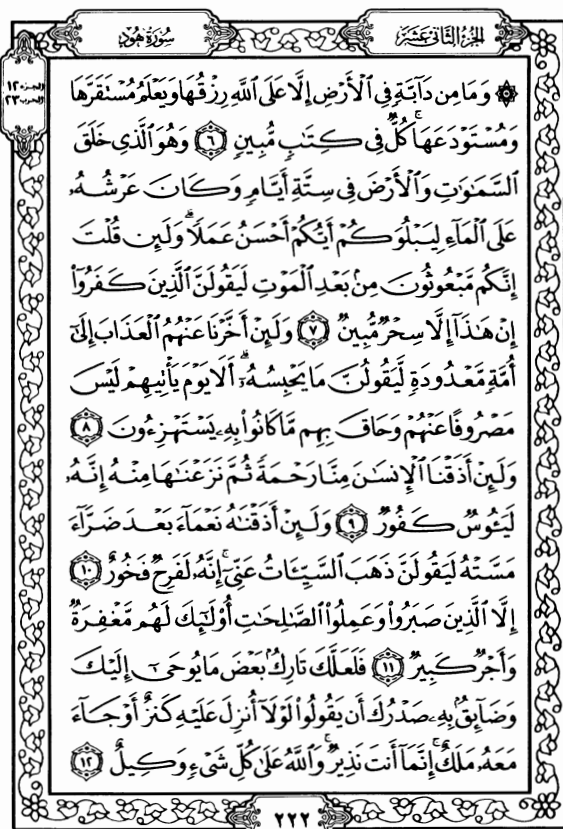 سُورَةُ هُود
الجزء الثاني عشر
الجزء ١٢
الحزب ٢٣
۞ وَمَا مِن دَآبَّةٍ فِي ٱلْأَرْضِ إِلَّا عَلَى ٱللَّهِ رِزْقُهَا وَيَعْلَمُ مُسْتَقَرَّهَا
وَمُسْتَوْدَعَهَا ۚ كُلٌّ فِي كِتَٰبٍ مُّبِينٍ ٦ وَهُوَ ٱلَّذِي خَلَقَ
ٱلسَّمَٰوَٰتِ وَٱلْأَرْضَ فِي سِتَّةِ أَيَّامٍ وَكَانَ عَرْشُهُۥ
عَلَى ٱلْمَآءِ لِيَبْلُوَكُمْ أَيُّكُمْ أَحْسَنُ عَمَلًا ۗ وَلَئِن قُلْتَ
إِنَّكُم مَّبْعُوثُونَ مِنۢ بَعْدِ ٱلْمَوْتِ لَيَقُولَنَّ ٱلَّذِينَ كَفَرُوٓا۟
إِنْ هَٰذَآ إِلَّا سِحْرٌ مُّبِينٌ ٧ وَلَئِنْ أَخَّرْنَا عَنْهُمُ ٱلْعَذَابَ إِلَىٰٓ
أُمَّةٍ مَّعْدُودَةٍ لَّيَقُولُنَّ مَا يَحْبِسُهُۥٓ ۗ أَلَا يَوْمَ يَأْتِيهِمْ لَيْسَ
مَصْرُوفًا عَنْهُمْ وَحَاقَ بِهِم مَّا كَانُوا۟ بِهِۦ يَسْتَهْزِءُونَ ٨
وَلَئِنْ أَذَقْنَا ٱلْإِنسَٰنَ مِنَّا رَحْمَةً ثُمَّ نَزَعْنَٰهَا مِنْهُ إِنَّهُۥ
لَيَـُٔوسٌ كَفُورٌ ٩ وَلَئِنْ أَذَقْنَٰهُ نَعْمَآءَ بَعْدَ ضَرَّآءَ
مَسَّتْهُ لَيَقُولَنَّ ذَهَبَ ٱلسَّيِّـَٔاتُ عَنِّيٓ ۚ إِنَّهُۥ لَفَرِحٌ فَخُورٌ ١٠
إِلَّا ٱلَّذِينَ صَبَرُوا۟ وَعَمِلُوا۟ ٱلصَّٰلِحَٰتِ أُو۟لَٰٓئِكَ لَهُم مَّغْفِرَةٌ
وَأَجْرٌ كَبِيرٌ ١١ فَلَعَلَّكَ تَارِكٌۢ بَعْضَ مَا يُوحَىٰٓ إِلَيْكَ
وَضَآئِقٌۢ بِهِۦ صَدْرُكَ أَن يَقُولُوا۟ لَوْلَآ أُنزِلَ عَلَيْهِ كَنزٌ أَوْ جَآءَ
مَعَهُۥ مَلَكٌ ۚ إِنَّمَآ أَنتَ نَذِيرٌ ۚ وَٱللَّهُ عَلَىٰ كُلِّ شَيْءٍ وَكِيلٌ ١٢
٢٢٢